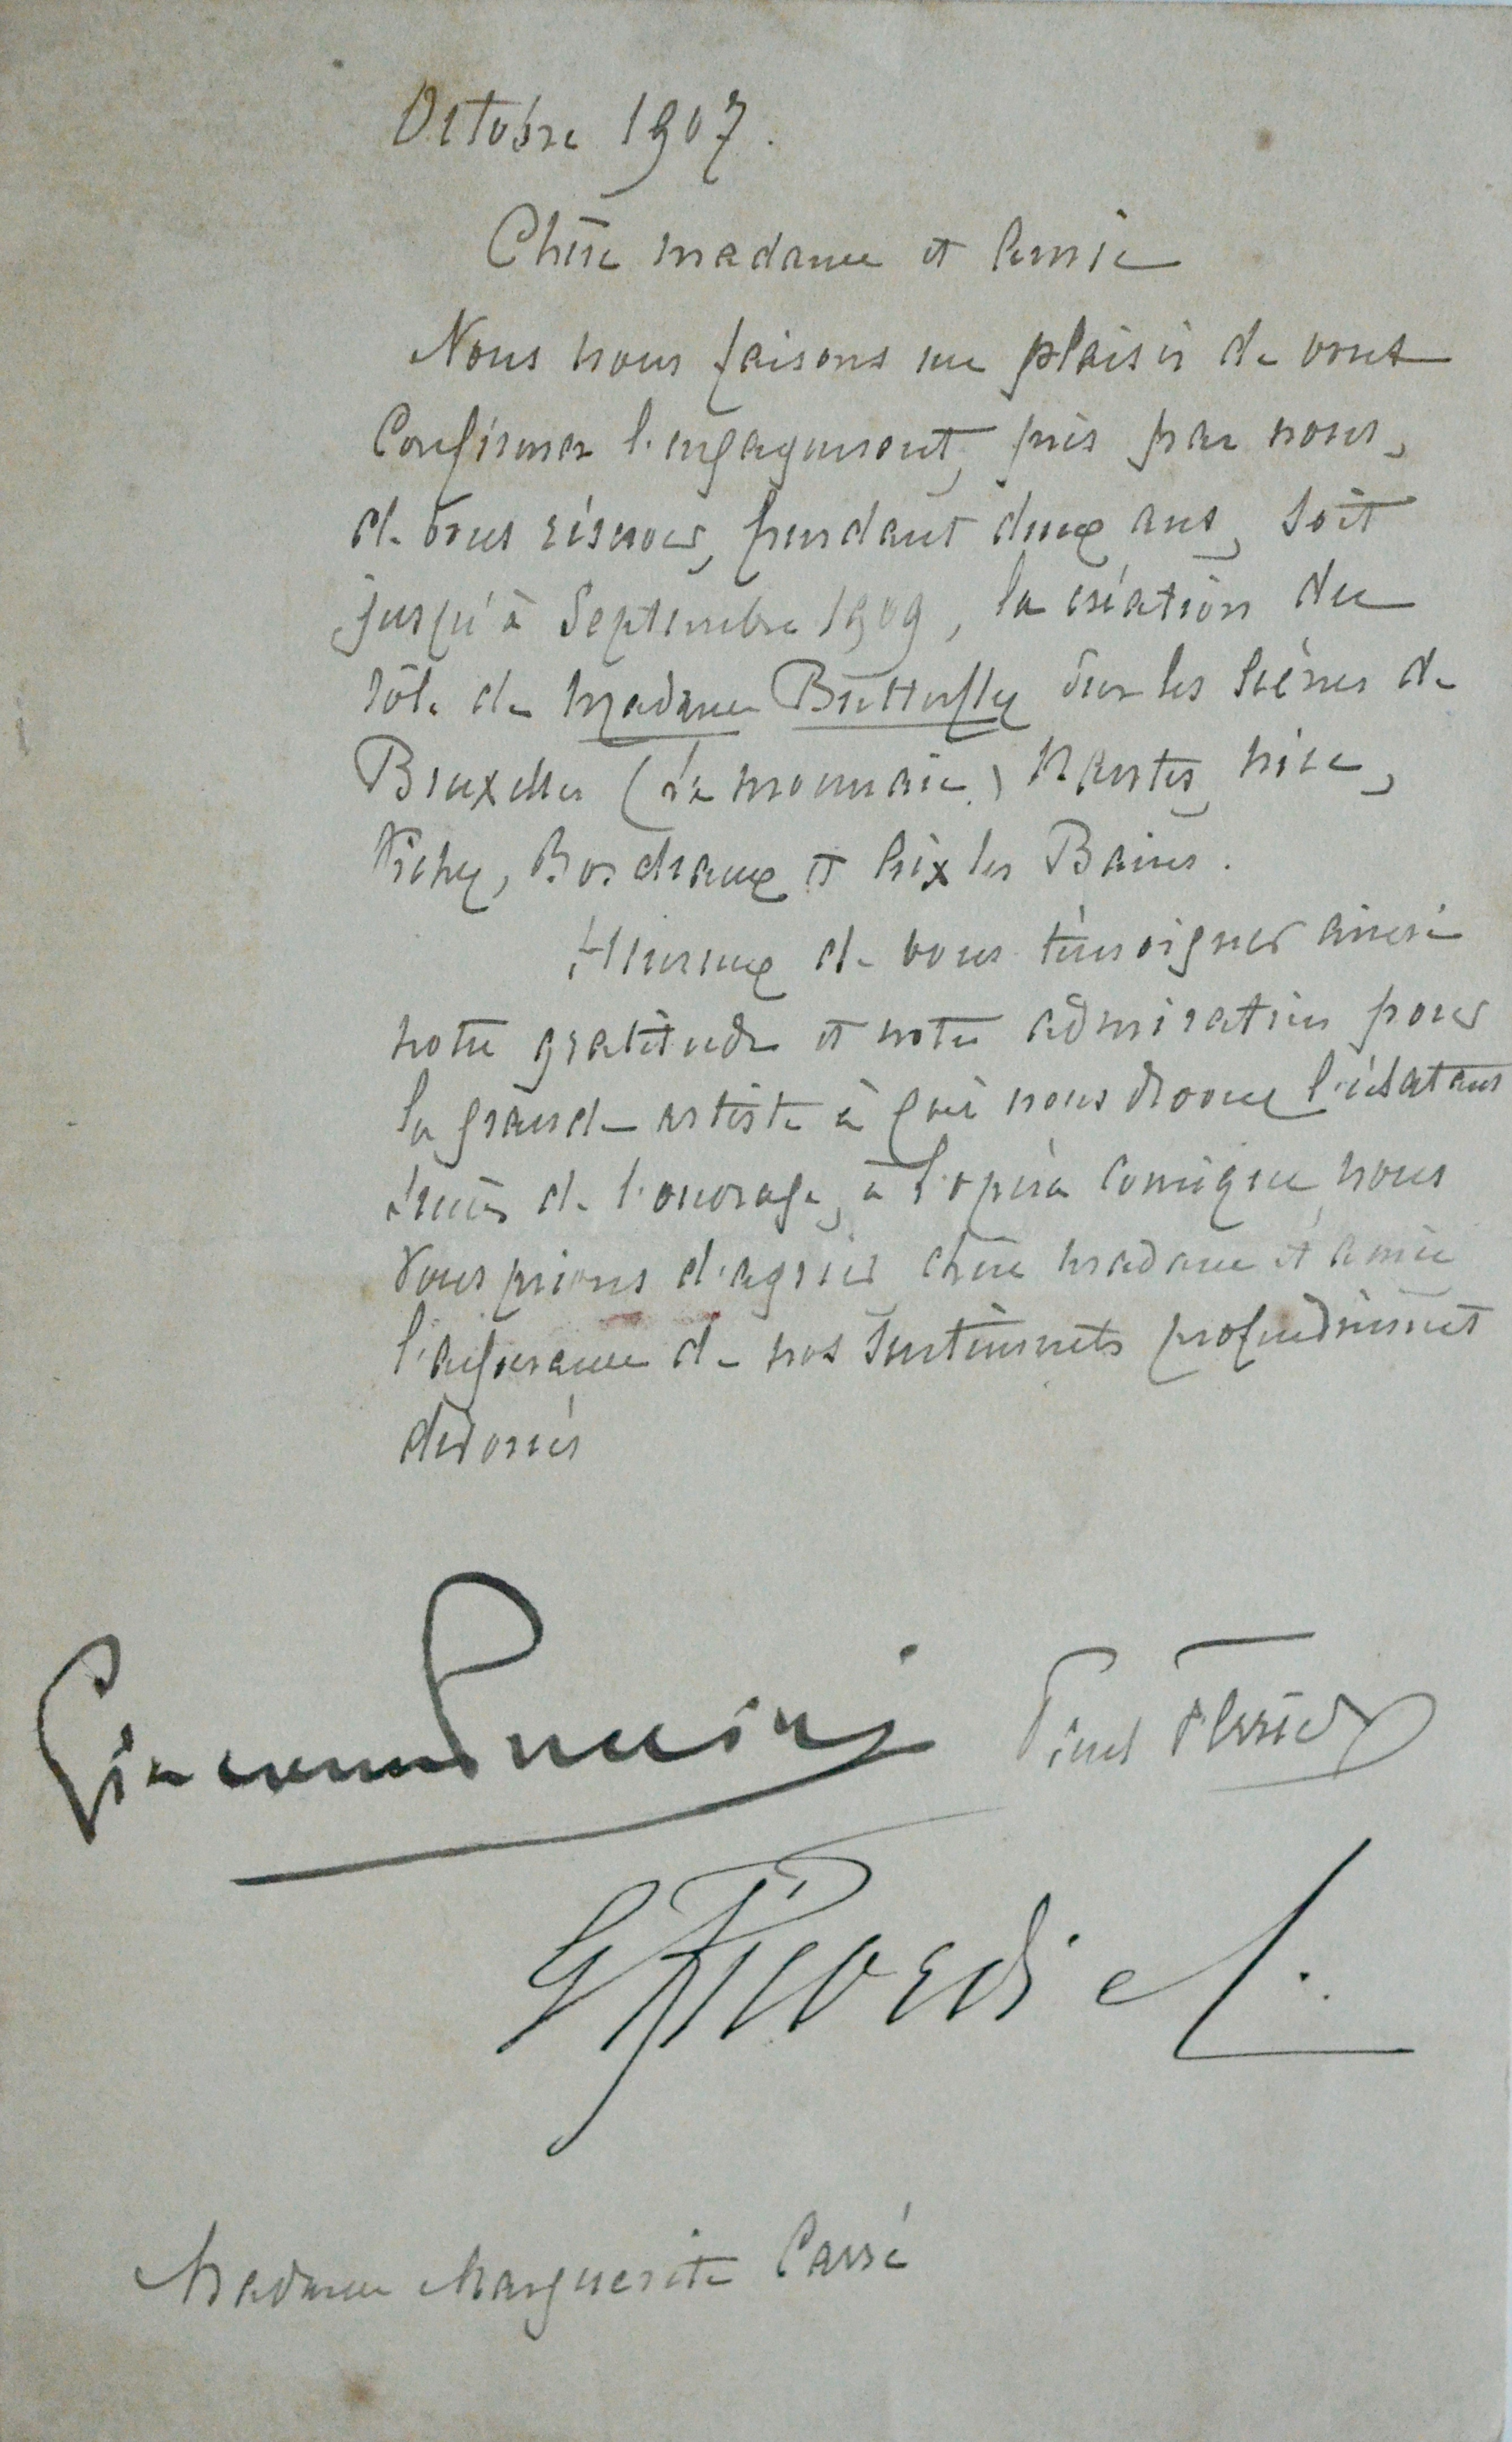 Octobre 1907.
Chère madame et amie
Nous nous faisons un plaisir de vous
confirmer l'engagement, pris par nous,
de vous réserver, pendant deux ans, soit
jusqu'à Septembre 1909, la création du
rôle de Madame Butterfly sur les scènes de
Bruxelles (La monnaie) Nantes, Nice,
Vichy, Bordeaux et Aix les Bains.
Heureux de vous témoigner ainsi
notre gratitude et notre admiration pour
la grande artiste à qui nous devons l'éclatant
succès de l'ouvrage, à l'opéra comique, nous
vous prions d'agréer chère madame et amie
l'assurance de nos sentiments profondément
dévoués
Giacomo Puccini
Paul Ferrier
G Ricordi e C.
Madame Marguerite Carré